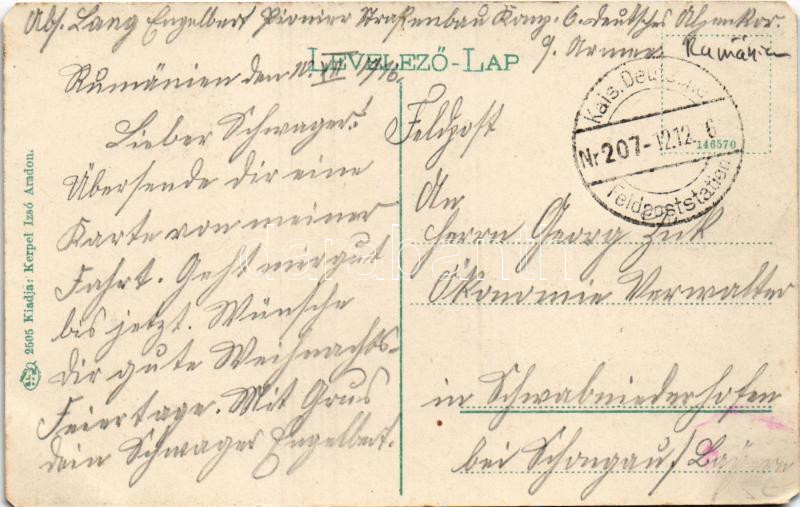 Abs. Lang Engelbert Pionier Straßenbau Komp. 6. deutsches Alpenkor.
9. Armee Rumänien
LEVELEZŐ-LAP
Rumänien den 11. XII 1916.
Lieber Schwager!
Übersende dir eine
Karte von meiner
Fahrt. Geht mir gut
bis jetzt. Wünsche
dir gute Weihnachts-
Feiertage. Mit Grus
dein Schwager Engelbert.
Feldpost
An
Herrn Georg Zük
Ökonomie Verwalter
in Schwabniederhofen
bei Schongau/Bayern
Kais. Deutsche
Nr 207 - 12.12. 6
Feldpoststation
146570
2505 Kiadja: Kerpel Izsó Aradon.
darabanth